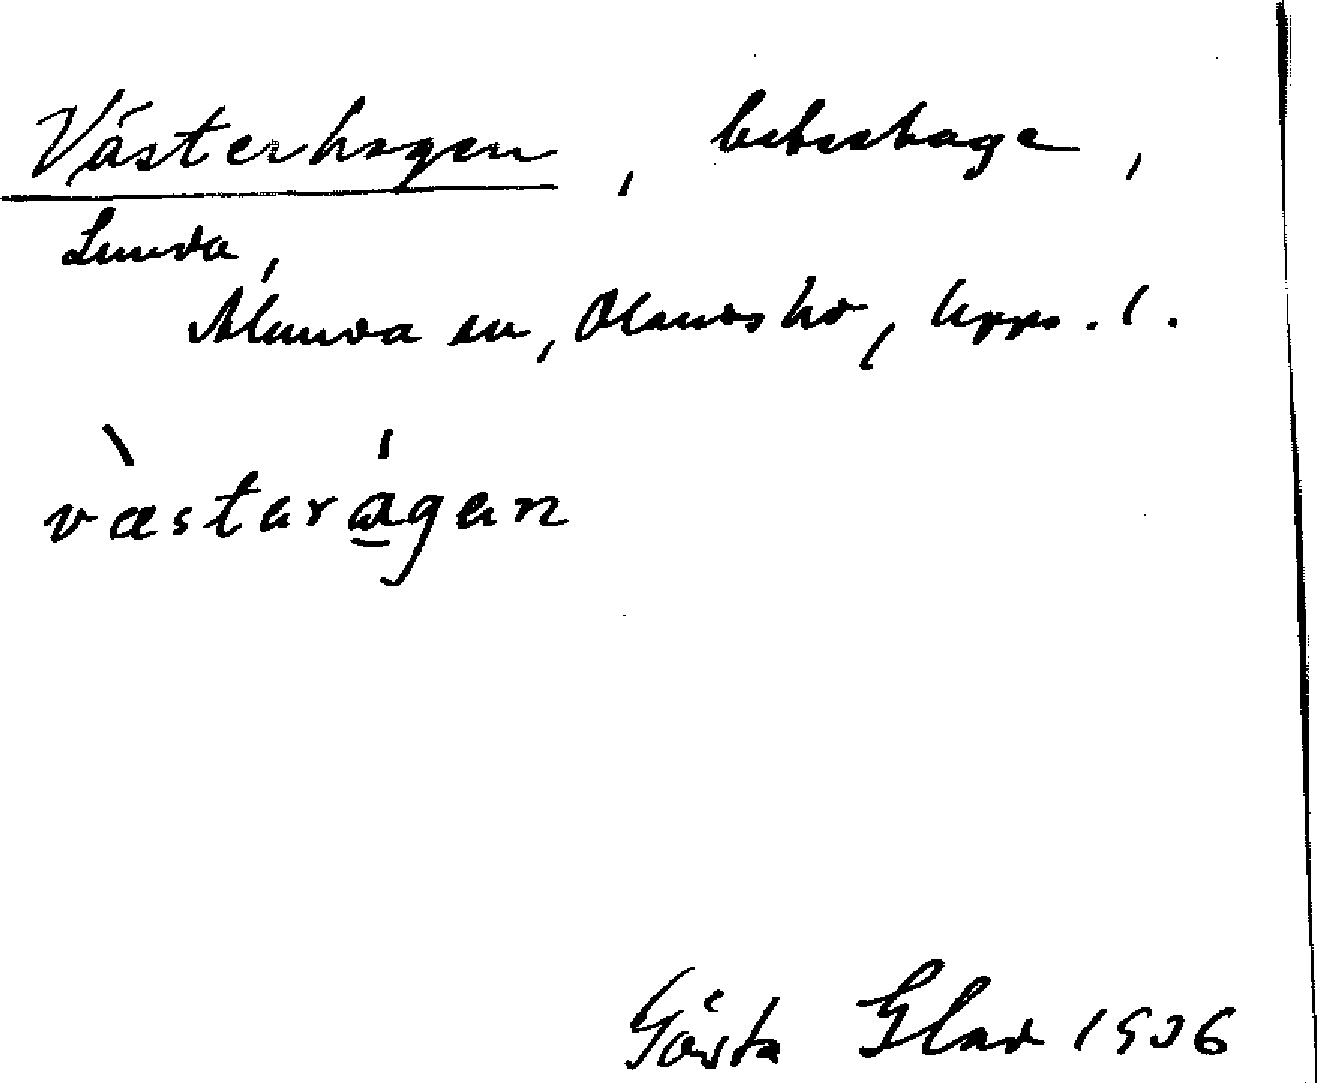 Västerhagen, beteshage,
Lunda,
Alunda sn, Olands hd, Upps. l.
væstarágan
Gösta Glad 1936